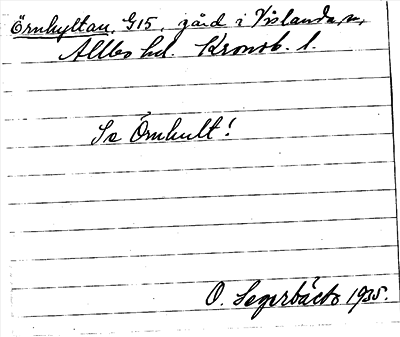 Örnhyltan, G15, gård i Vislanda sn,
Allbo hd. Kronob. l.
Se Örnhult!
O. Segerbäck 1935.